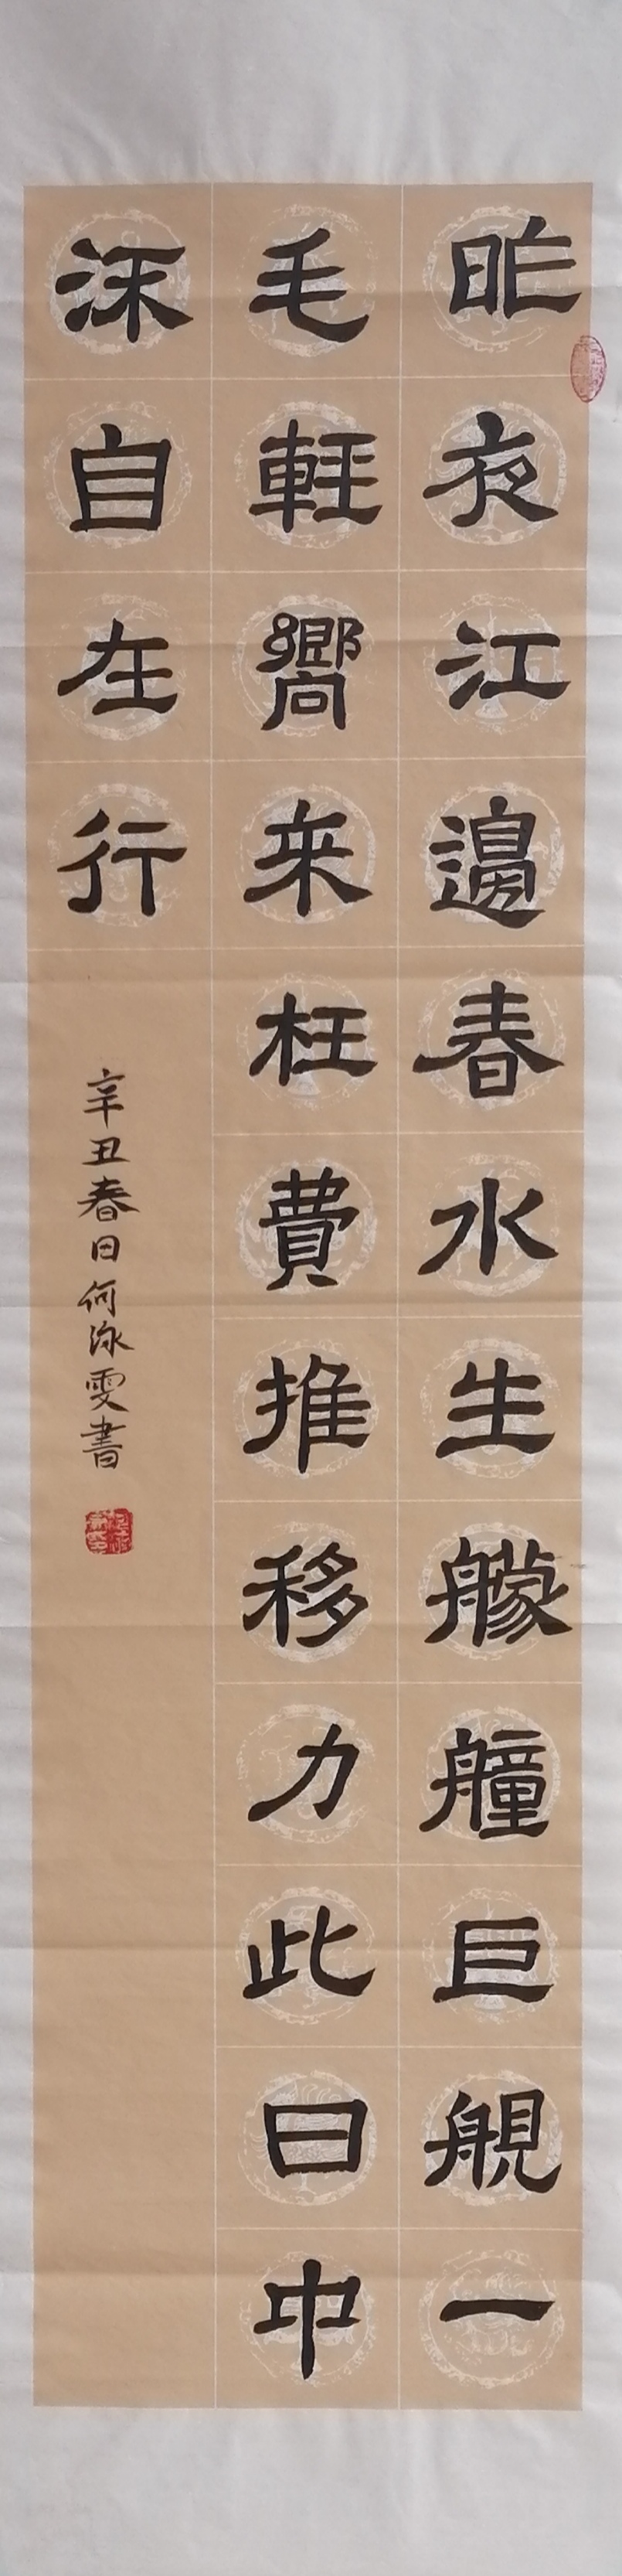 昨夜江邊春水生艨艟巨舰一
毛輕嚮来枉費推移力此日中
流自在行
辛丑春日何泳雯書